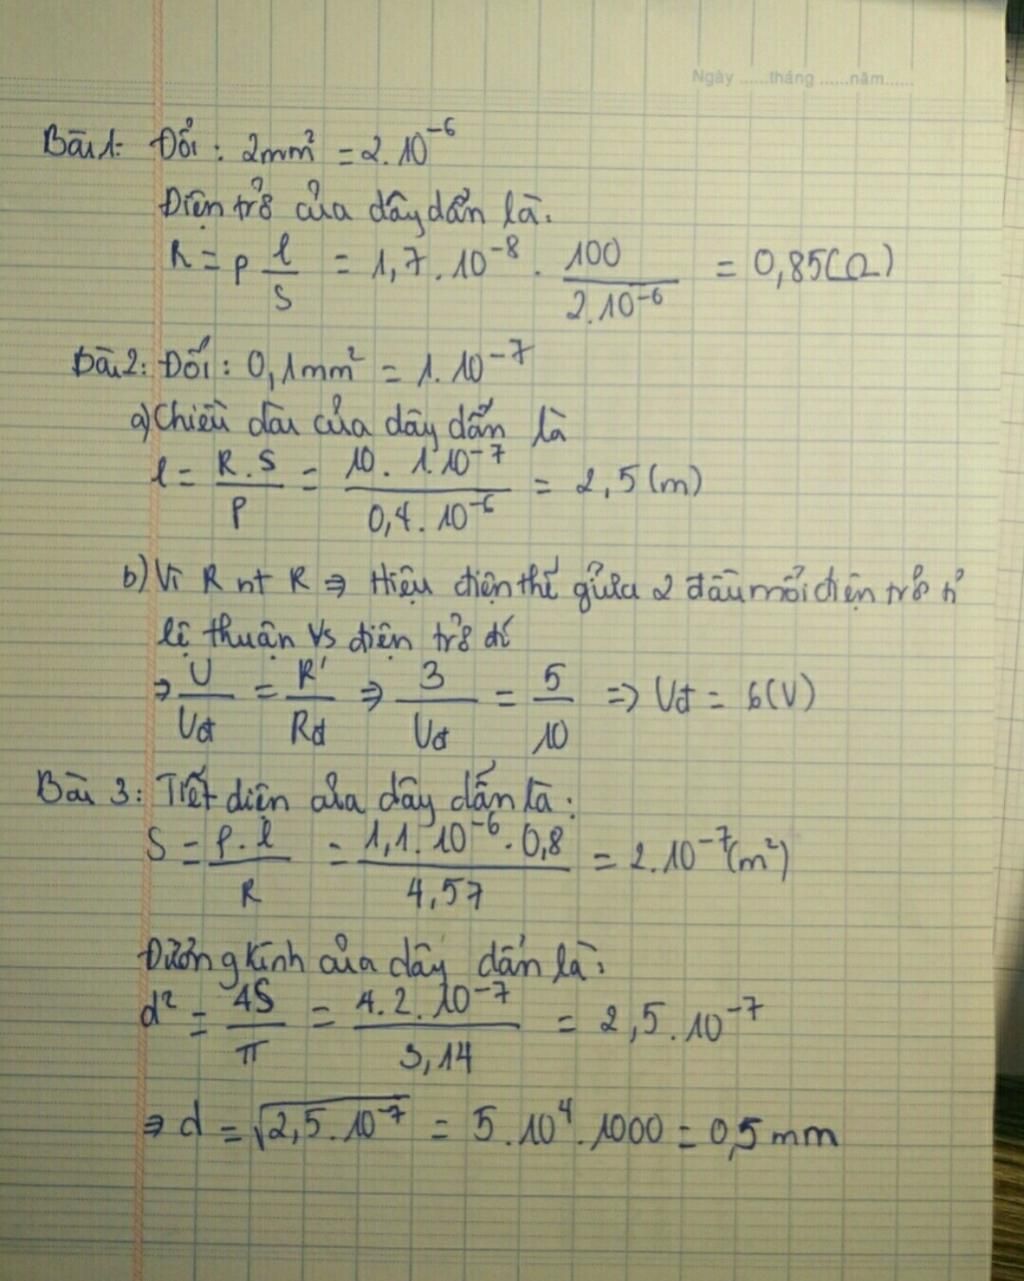 Ngày ......tháng ......năm......
Bài 1: Đổi : 2mm² = 2.10⁻⁶
Điện trở của dây dẫn là:
R = ρ l/S = 1,7.10⁻⁸ . 100/2.10⁻⁶ = 0,85(Ω)
Bài 2: Đổi : 0,1mm² = 1.10⁻⁷
a) Chiều dài của dây dẫn là
l = R.S/ρ = 10.1.10⁻⁷/0,4.10⁻⁶ = 2,5(m)
b) Vì R nt R ⇒ Hiệu điện thế giữa 2 đầu mỗi điện trở tỉ
lệ thuận vs điện trở đó
⇒ U/Uđ = R'/Rđ ⇒ 3/Uđ = 5/10 => Uđ = 6(V)
Bài 3: Tiết diện của dây dẫn là:
S = ρ.l/R = 1,1.10⁻⁶.0,8/4,57 = 2.10⁻⁷(m²)
Đường kính của dây dẫn là:
d² = 4S/π = 4.2.10⁻⁷/3,14 = 2,5.10⁻⁷
⇒ d = √2,5.10⁻⁷ = 5.10⁴.1000 = 0,5mm